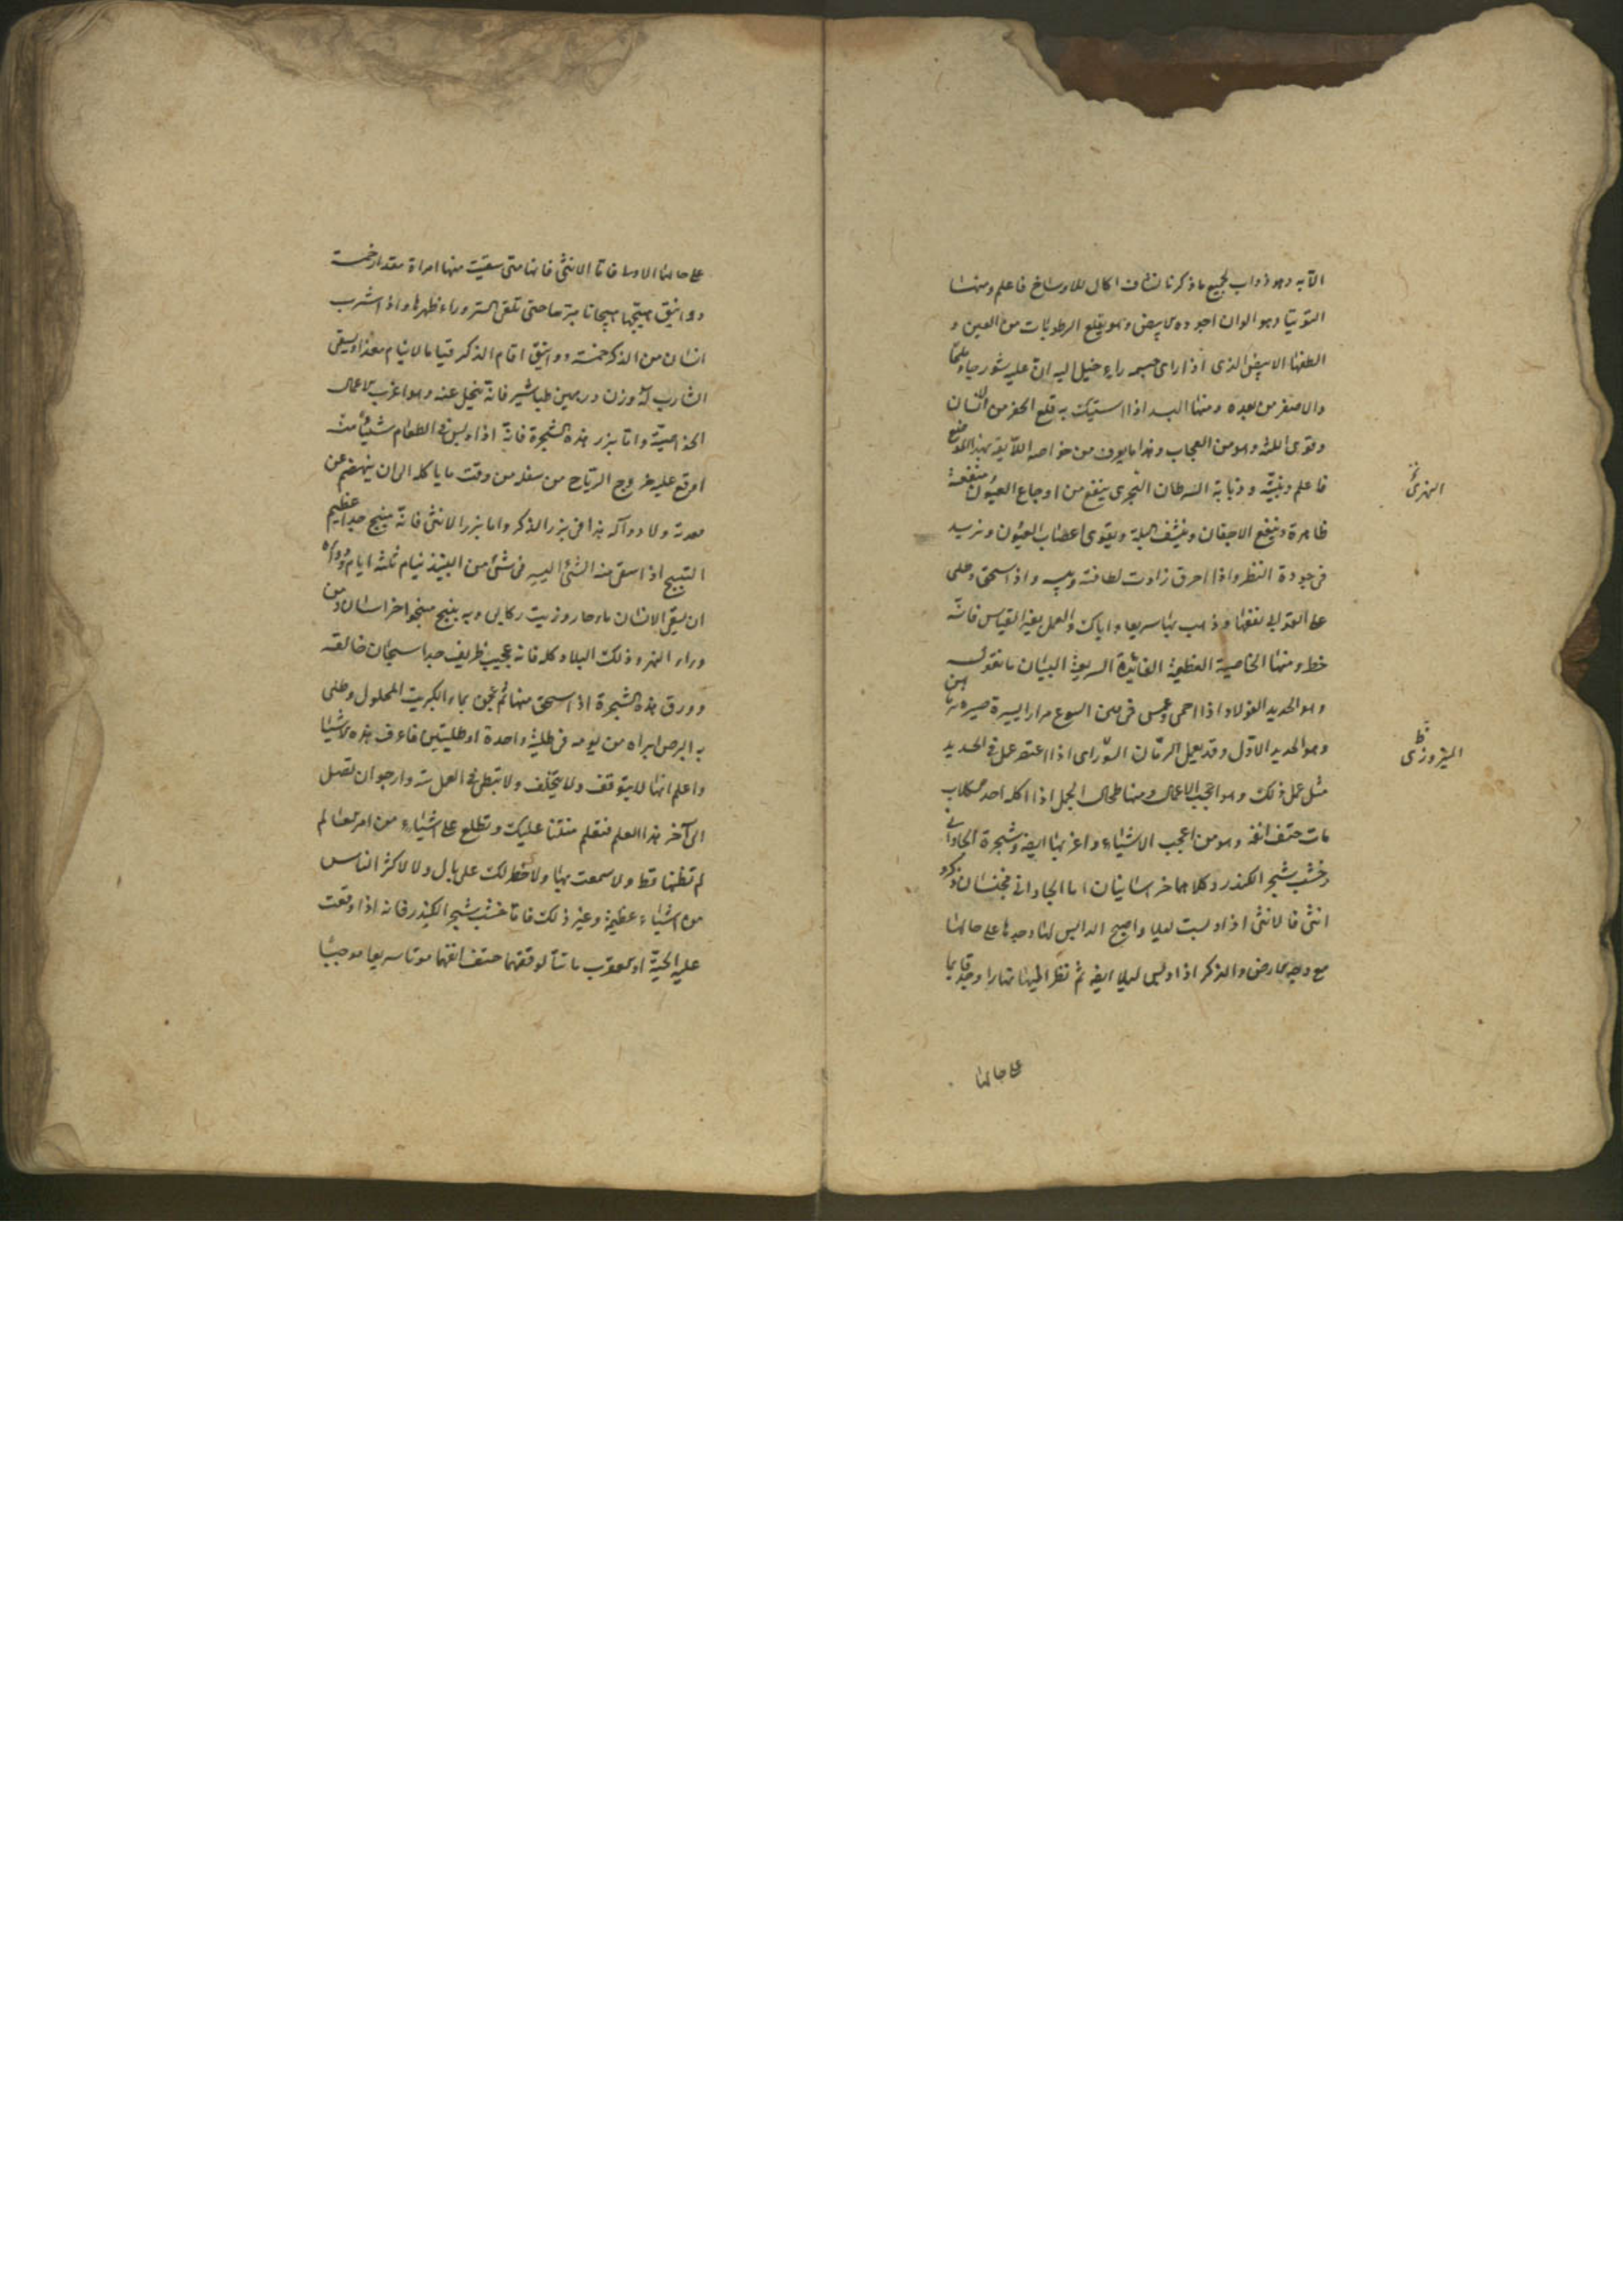 الآبه وهو ذواب لجميع ما ذكرنا نشاف اكال للاوساخ فاعلم ومنها
التوتيا وهو الوان اجوده الابيض وهو يقلع الرطوبات من العين و
الطفها الابيض الذى اذا راى جسمه رايه خيل اليه ان عليه شور حيا وملحا
والاصفر من بعده ومنها البسد اذا استيك به قلع الحفر من الاسنان
وقوى اللثه وهو من العجاب وهذا ما يعرف من خواصه اللآيقه بهذا الموضع
فاعلم وبنيته وذبابة السرطان البحرى ينفع من اوجاع العيون منفعة
ظاهرة وينفع الاجفان وينشف البلة ويقوى اعصاب العيون ونريد
فى جودة النظر واذا احرق زادت لطافته ويبسه واذا سحق وطلى
على العقد نفعها وذهب بها سريعا واياك والعمل بغير القياس فانه
خط ومنها الخاصية العظيمة الفائدة السريعة البيان ما نقول
وهو الحديد الفولاد اذا احمى وغمس فى مرارا يسيرة صيره
وهو الحديد الاول وقد يعمل الرمان السورانى اذا اعتصر عمل فى الحديد
مثل عمل ذلك وهو اعجب الاعمال ومنها طحال الجمل اذا اكله احد الكلاب
مات حتف انفه وهو من اعجب الاشياء واغربها ايضا وشجرة الجاودانى
وخشب شجر الكندر وكلاهما خراسانيان اما الجاودانى فجنسان ذكر و
انثى فالانثى اذا ديست ليلا واصبح الدايس لها وجدها على حالها
مع وجه الارض والذكر اذا ديس ليلا ايضا ثم نظر اليها نهارا وجد قايما
على حالها
النهرى
النيروزى
على حالها الاول فاما الانثى فانها متى سقيت منها امراة مقدار خمسة
دوانيق هيجها هيجانا حتى تلقى الستر وراء ظهرها واذا شرب
انسان من الذكر خمسة دوانيق اقام الذكر قياما لا ينام معه او يسقى
الشارب له وزن درهمين طباشير فانه ينحل عنه وهو اغرب الاعمال
الخواصية واما بزر هذه الشجرة فانه اذا ديس فى الطعام شيئا منه
اوقع عليه خروج الرياح من سفله من وقت ما ياكله الى ان ينهضم عن
معدته ولا دوآ له هذا فى بزر الذكر واما بزر الانثى فانه مبنج جدا عظيم
التبنيج اذا سقى منه الشئ اليسير فى شئ من النبيذ نيام ثلثة ايام ودواؤه
ان يسقى الانسان ماء حار وزيت ركابى وبه يبنج مبنجوا خراسان ومن
وراء النهر وذلك البلاد كله فانه عجيب ظريف جدا سبحان خالقه
وورق هذه الشجرة اذا سحق منها ثم عجن بماء الكبريت المحلول وطلى
به البرص ابراه من يومه فى طلية واحدة او طليتين فاعرف هذه الاشيا
واعلم انها لا يتوقف ولا يتخلف ولا تبطى فى العمل بتة وارجو ان تصل
الى آخر هذا العلم فتعلم منتنا عليك وتطلع على اشياء من امر العالم
لم تظنها قط ولا سمعت بها ولا خطر لك على بال ولا لاكثر الناس
من اشياء عظيمة وغير ذلك فاما خشب شجر الكندر فانه اذا وقعت
عليه الحية او العقرب ماتتا لوقتهما حتف انفهما موتا سريعا موجبا